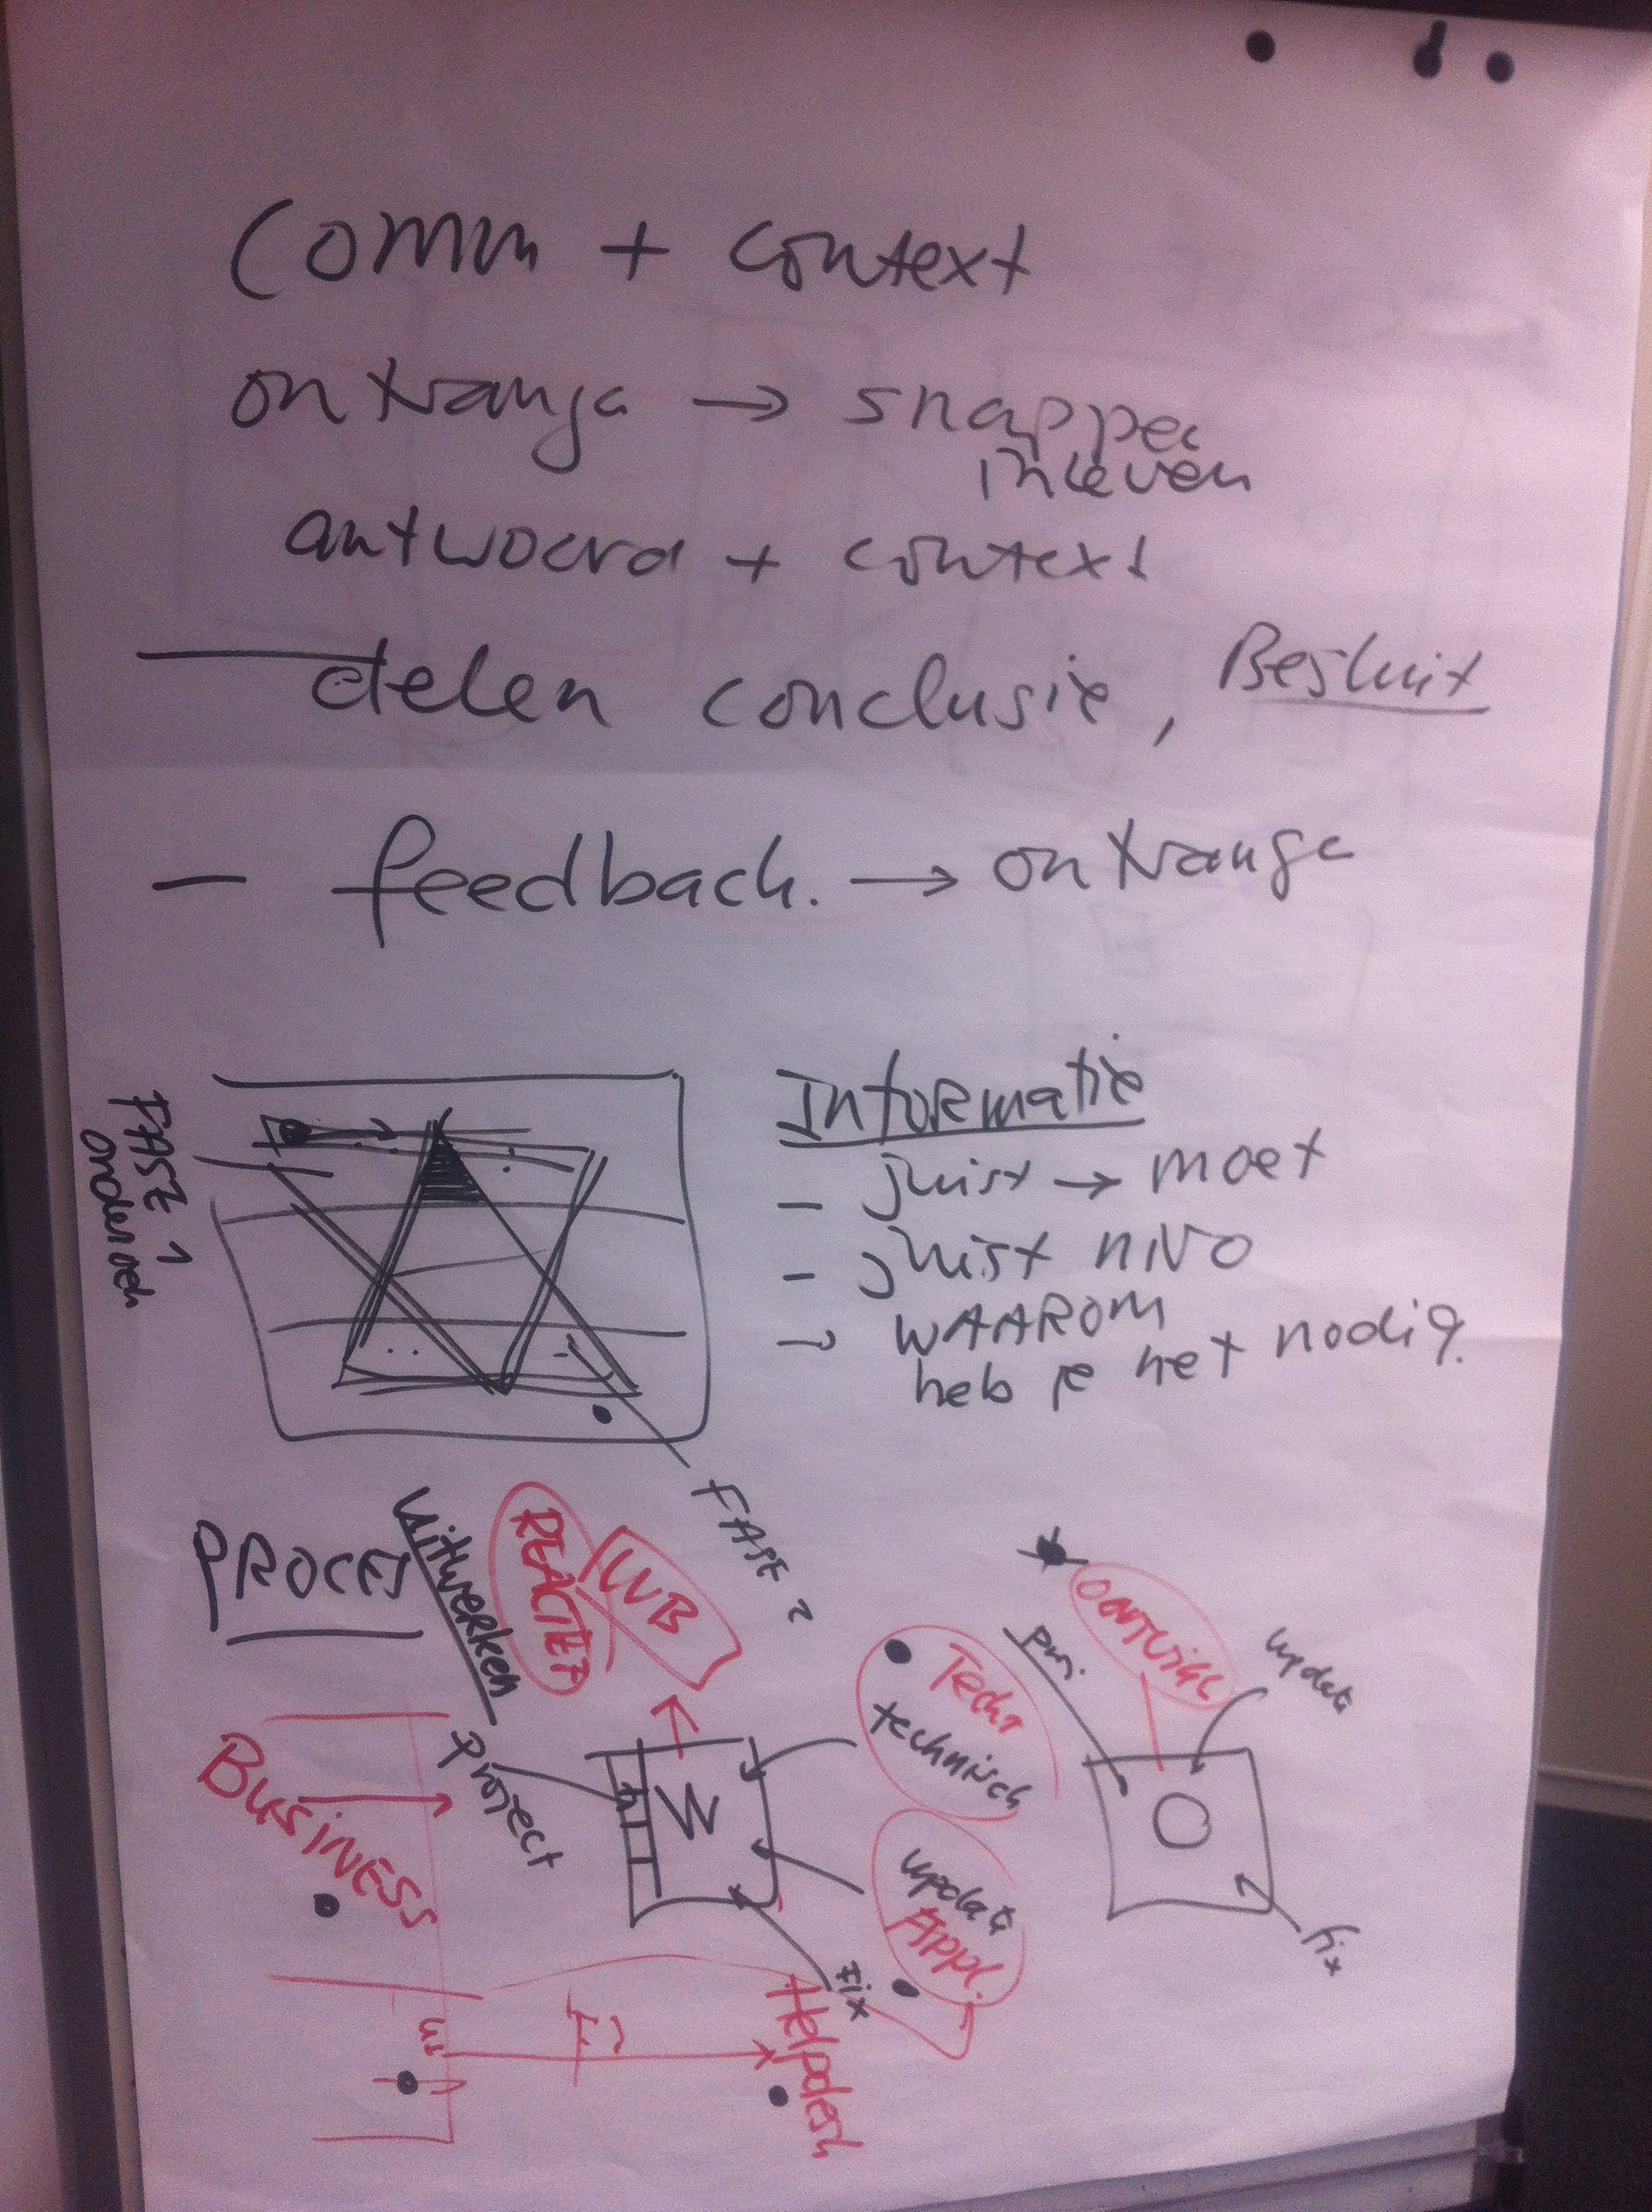 Comm + context
ontvange → snappen
inleven
antwoord + context
delen conclusie, Besluit
— feedback. → ontvange
FASE 1
onderzoek
Informatie
- juist → moet
- juist nivo
→ WAAROM
heb je het nodig.
FASE 2
PROCES
uitwerken
REACTIEF
WB
Project
W
Tech
technisch
update
Appl.
Fix
update
O
fix
BUSINESS
Helpdesk